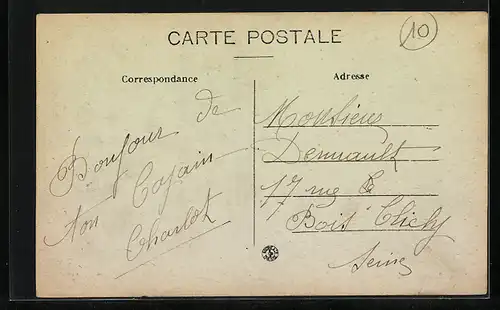 CARTE POSTALE
10
Correspondance
Bonjour de
ton Copain
Charlot
Adresse
Monsieur
17 rue
Bois Clichy
Seine